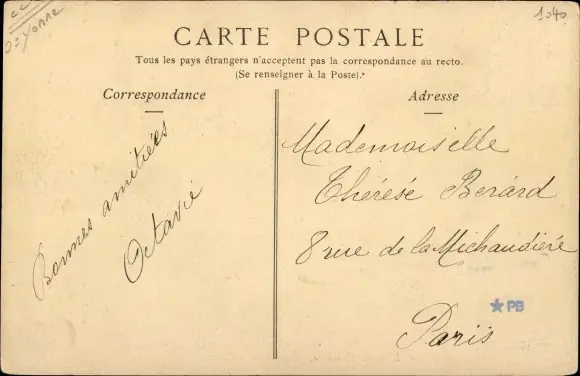 Yonne
1040
CARTE POSTALE
Tous les pays étrangers n'acceptent pas la correspondance au recto.
(Se renseigner à la Poste).
Correspondance
Bonnes amitiées
Octavie
Adresse
Mademoiselle
Thérése Berard
8 rue de la Michaudiére
Paris
PB